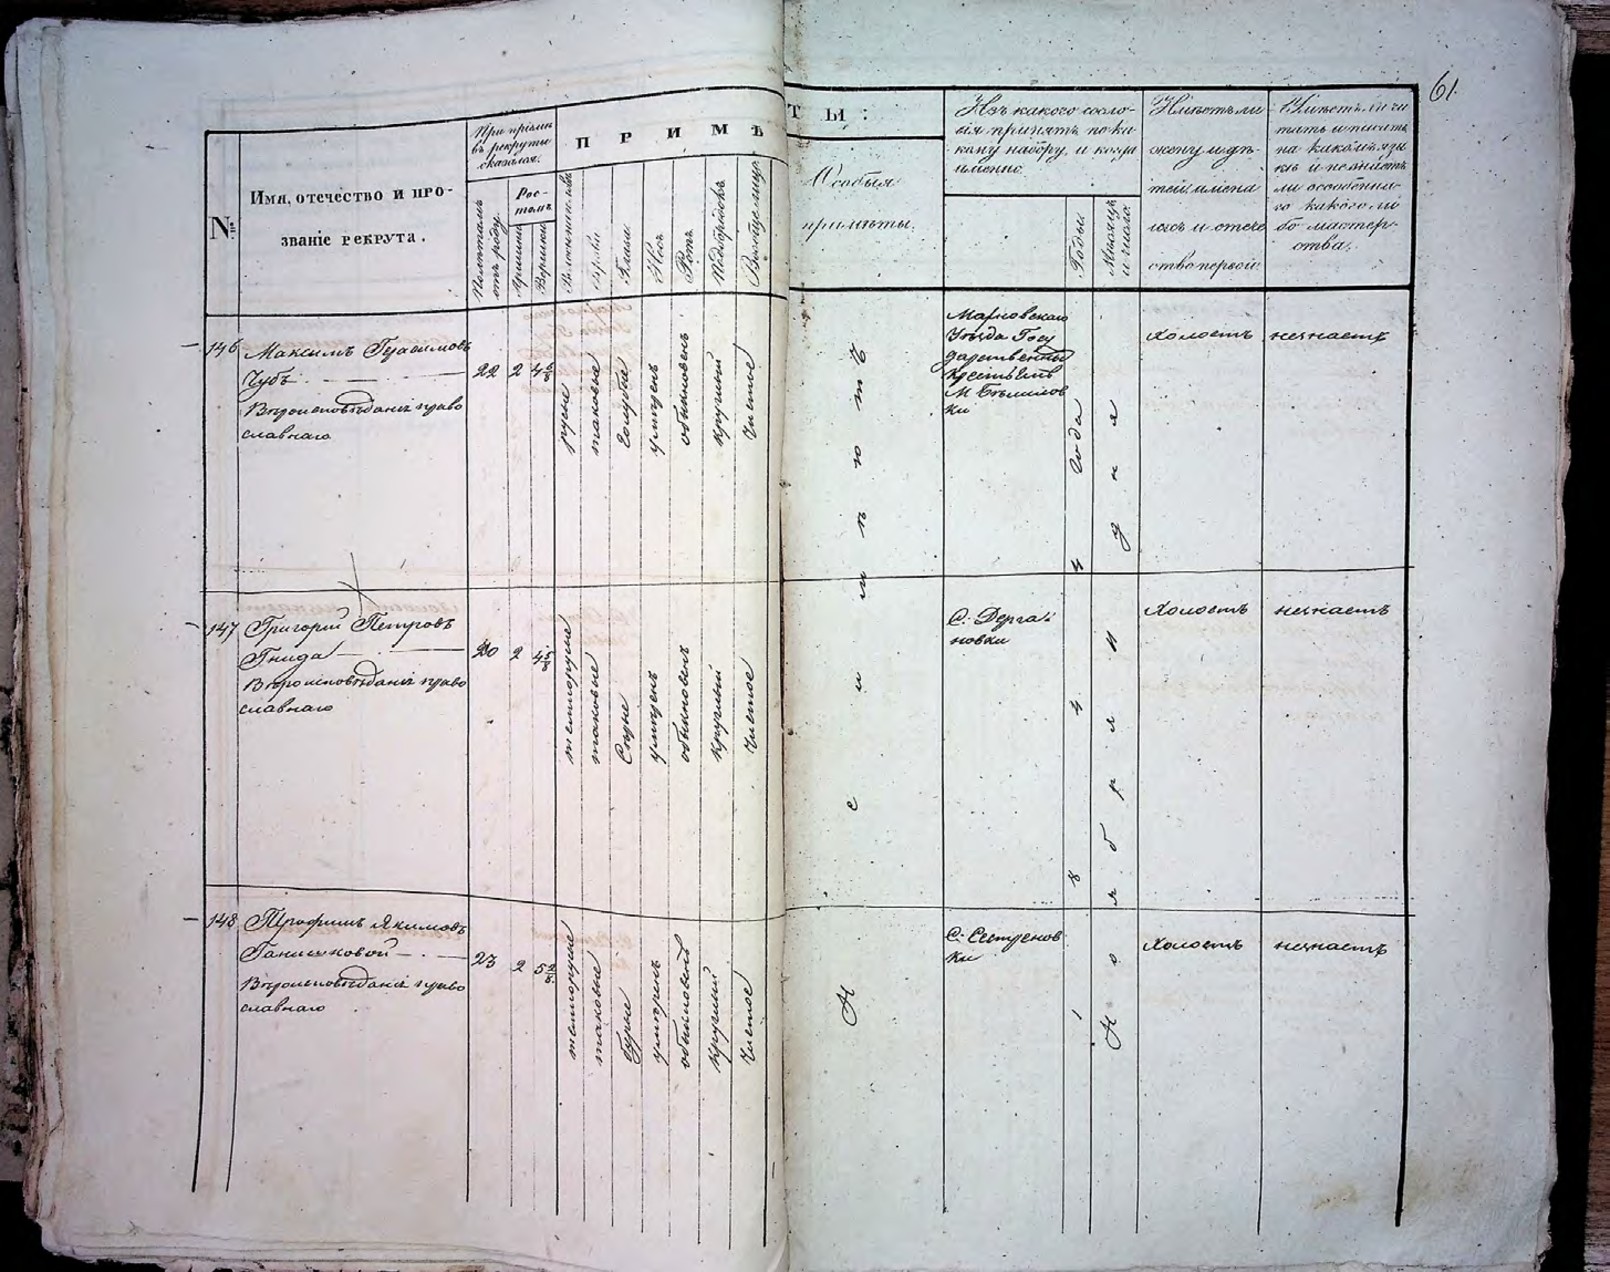 61.
№
Имя, отечество и про-
званіе рекрута.
При пріемѣ
въ рекруты
оказался.
Полѣтамъ
отъ роду.
Рос-
томъ
Аршинъ
Вершки
ПРИМѢТЫ:
брови
Глаза
Носъ
Ротъ
Подбородокъ
Вообще лицо
Особыя
примѣты.
Изъ какого сосло-
вія принятъ по ка-
кому набору и когда
именно.
Годы
Мѣсяцъ
и число.
Имѣетъ ли
жену и дѣ-
тей имена
ихъ и отече
ство первой
Умѣетъ ли чи
тать и писать
на какомъ язы
кѣ и незнаетъ
ли особенна-
го какого ли
бо мастер-
ства.
146
Максимъ Герасимовъ
Чубъ
Вѣроисповѣданія право
славнаго
22
2
4 5/8
русые
таковые
Голубые
умѣренъ
обыкновенъ
круглый
Чистое
Неимѣютъ
Уѣзда Госу
дарственны
Крестьянъ
ки
1844 года
Ноября дня
Холостъ
незнаетъ
147
Григорій Петровъ
Гнида
Вѣроисповѣданія право
славнаго
20
2
4 5/8
темнорусые
таковые
Серые
умѣренъ
обыкновенъ
круглый
Чистое
С. Дерга-
новки
Холостъ
незнаетъ
148
Трофимъ Якимовъ
Вѣроисповѣданія право
славнаго
23
2
5 2/8
темнорусые
таковые
умѣренъ
обыкновенъ
круглый
Чистое
С. Сестренов
ки
Холостъ
незнаетъ